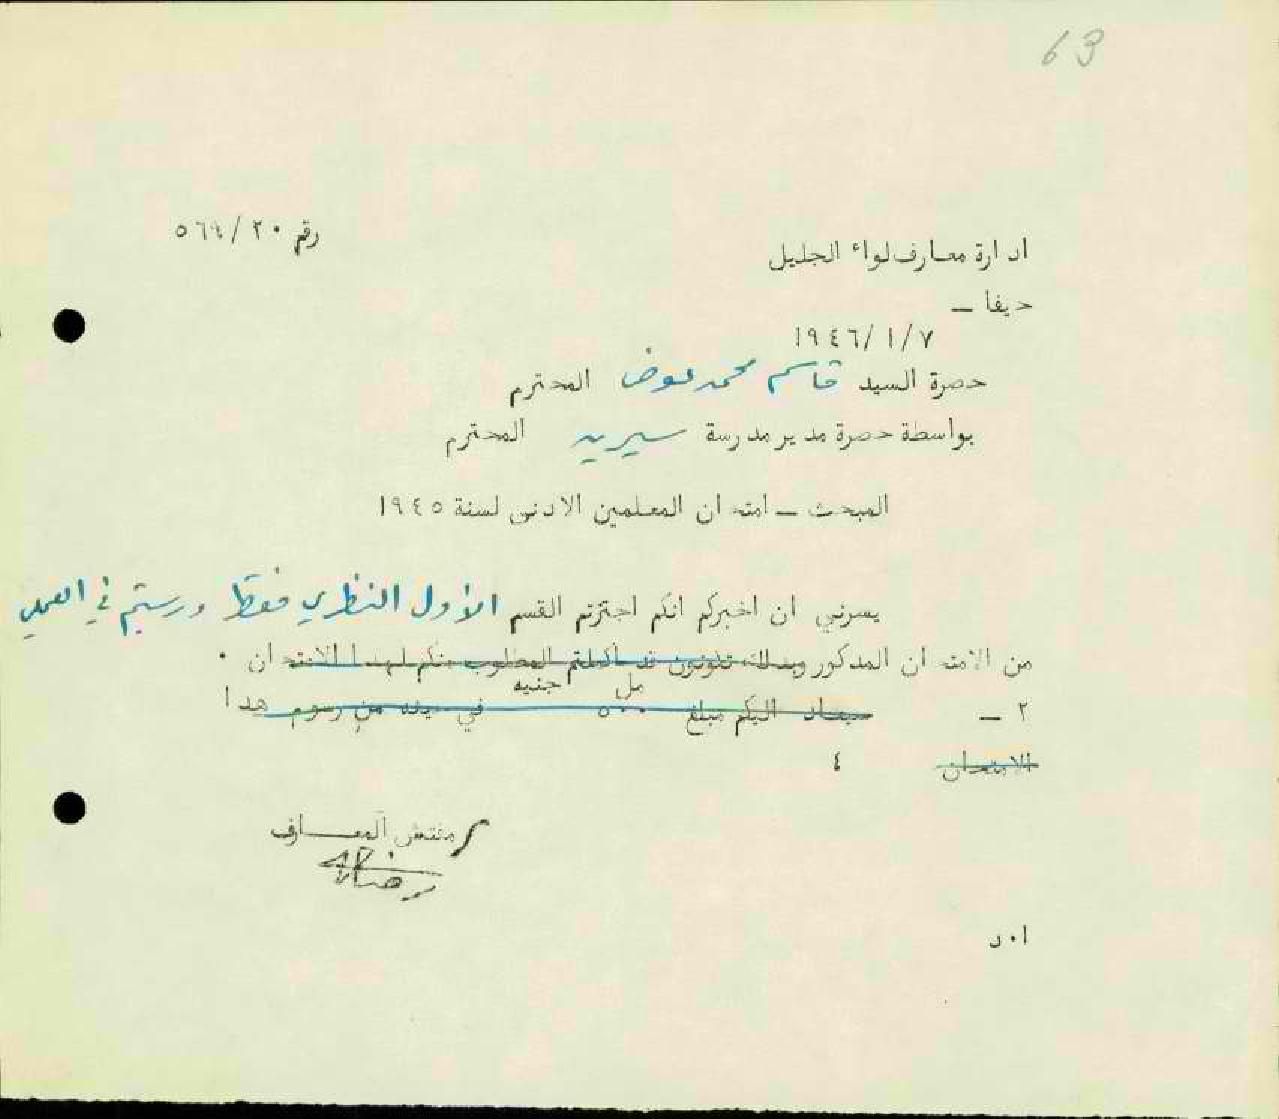 63
رقم ٢٠/٥٦٩
ادارة معارف لواء الجليل
حيفا –
١٩٤٦/١/٧
حضرة السيد قاسم محمد عوض المحترم
بواسطة حضرة مدير مدرسة سيرين المحترم
المبحث – امتحان المعلمين الادنى لسنة ١٩٤٥
يسرني ان اخبركم انكم اجتزتم القسم الأول النظري فقط ورسبتم في العملي
من الامتحان المذكور وبذلك تكونون قد اكملتم المطلوب منكم لهذا الامتحان ٠
مل جنيه
٢ – سيعاد اليكم مبلغ ٥٠٠ في حينه من رسوم هذا
الامتحان ٤
مفتش المعارف
ا٠د